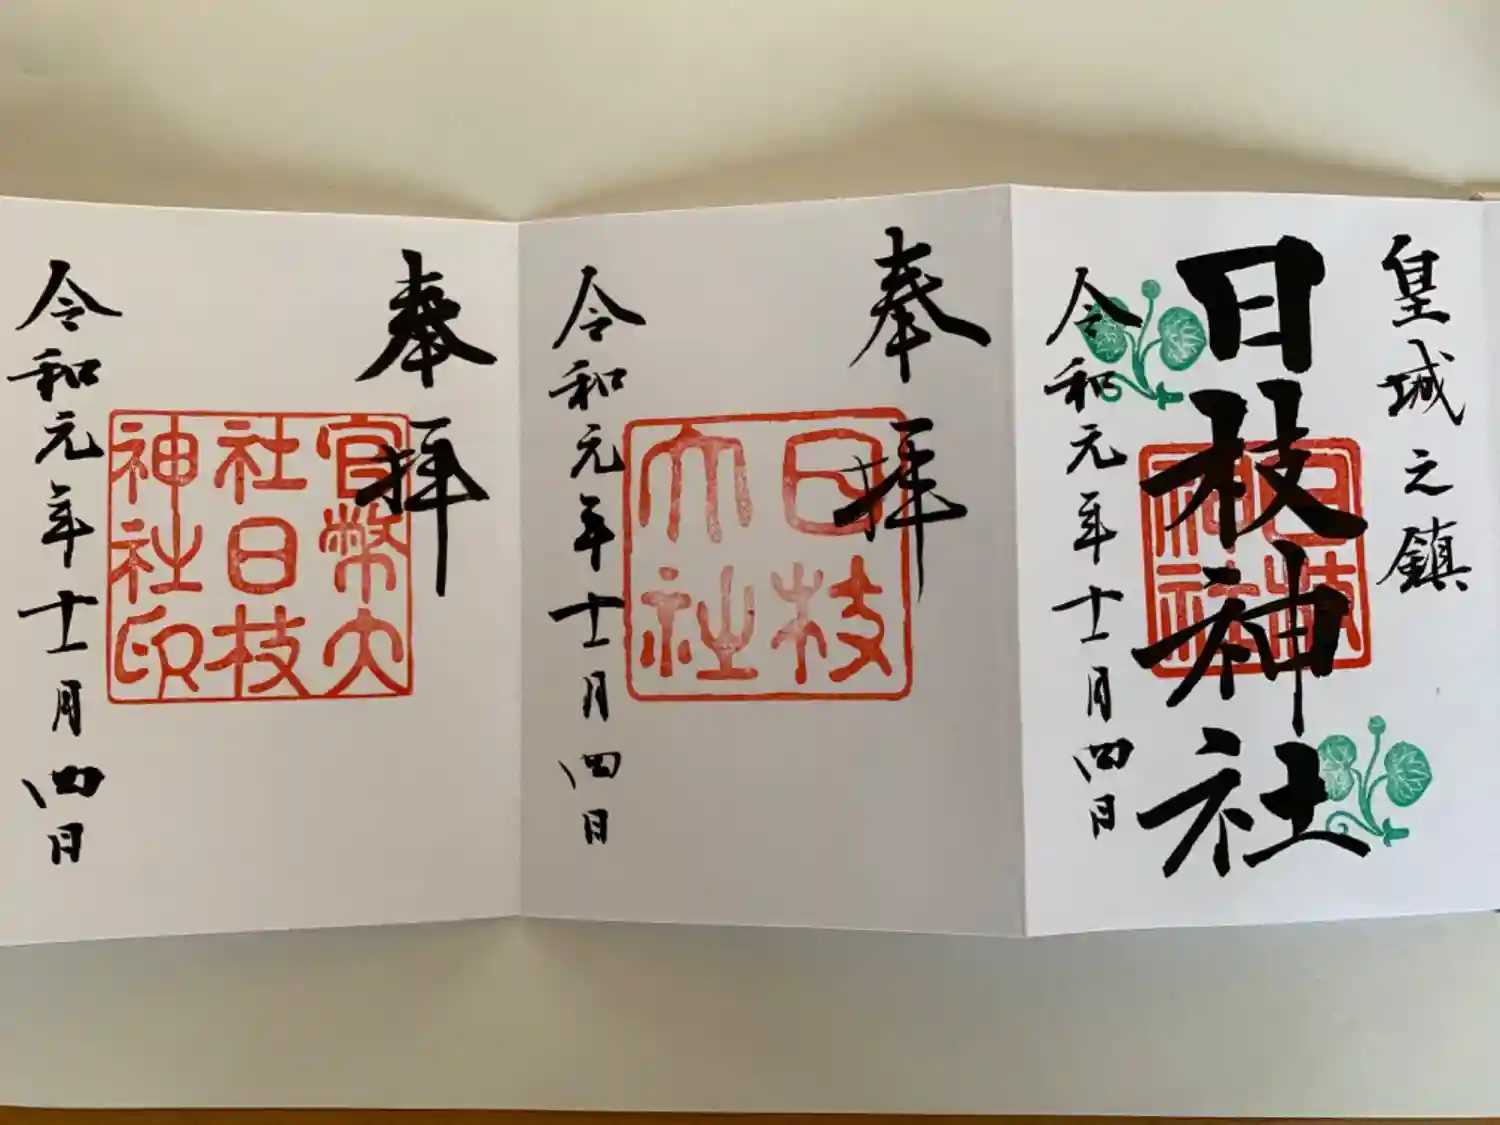 皇城之鎮
日枝神社
日枝
神社
令和元年十一月四日
奉拝
日枝
大社
令和元年十一月四日
奉拝
官幣大
社日枝
神社印
令和元年十一月四日